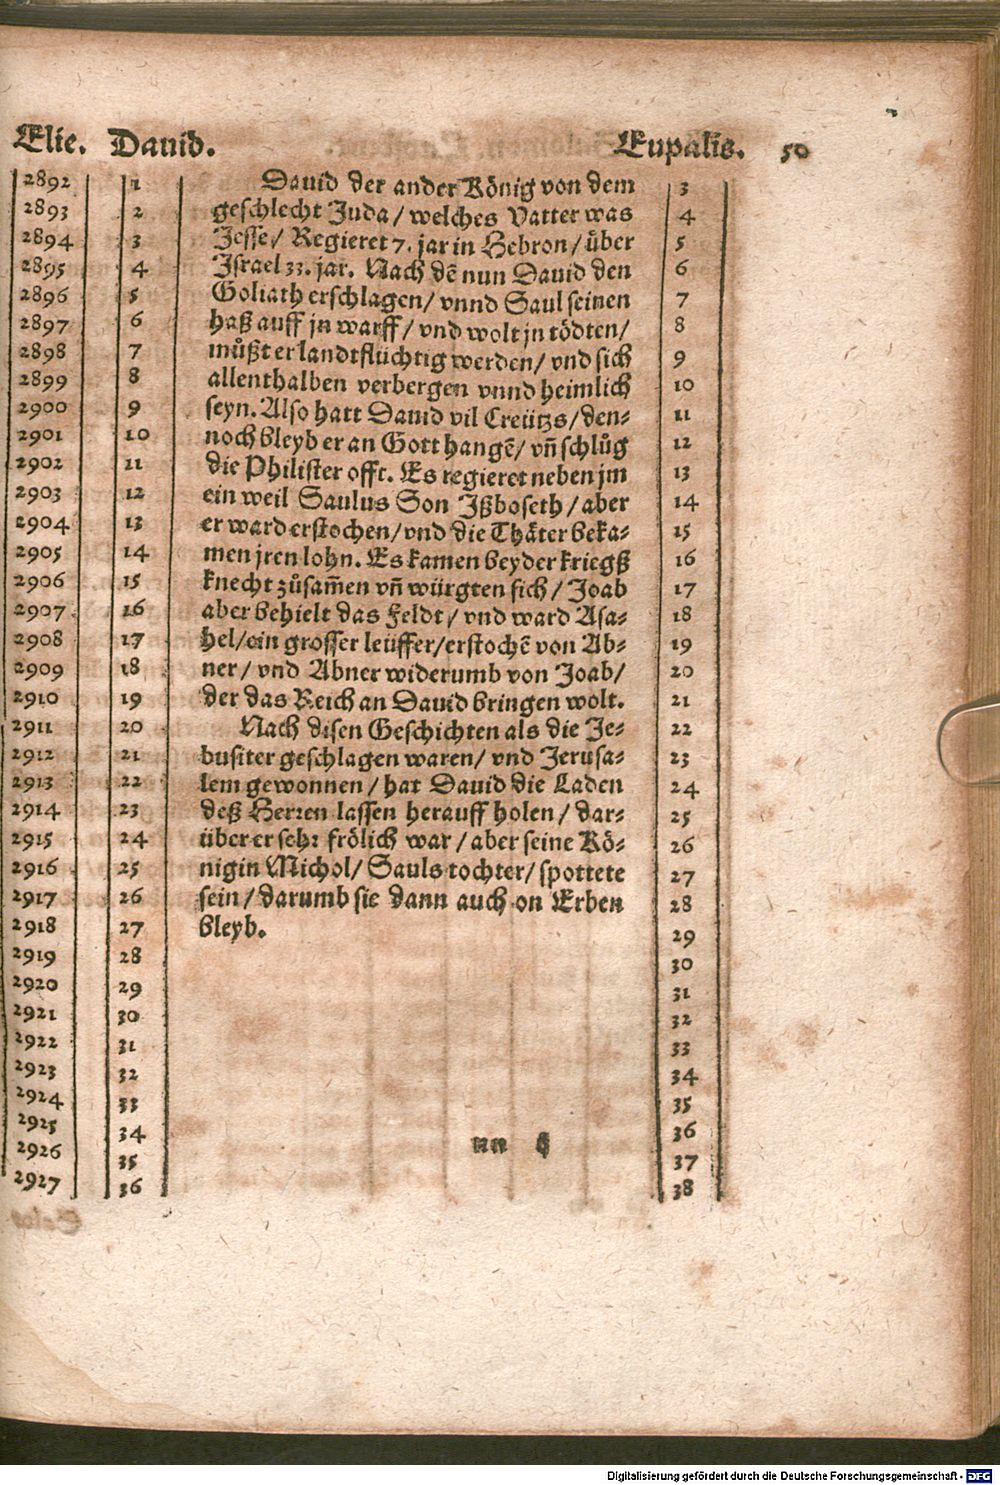 Elie. Dauid. Eupalis. 50
2892 1 Dauid der ander König von dem 3
2893 2 geschlecht Juda / welches Vatter was 4
2894 3 Jesse / Regieret 7. jar in Hebron / über 5
2895 4 Israel 33. jar. Nach dẽ nun Dauid den 6
2896 5 Goliath erschlagen / vnnd Saul seinen 7
2897 6 haß auff jn warff / vnd wolt jn tödten / 8
2898 7 müßt er landtflüchtig werden / vnd sich 9
2899 8 allenthalben verbergen vnnd heimlich 10
2900 9 seyn. Also hatt Dauid vil Creütjs / den- 11
2901 10 noch bleyb er an Gott hangẽ / vñ schlůg 12
2902 11 die Philister offt. Es regieret neben jm 13
2903 12 ein weil Saulus Son Ißboseth / aber 14
2904 13 er ward erstochen / vnd die Thäter beka- 15
2905 14 men jren lohn. Es kamen beyder kriegß 16
2906 15 knecht zůsam̃en vñ würgten sich / Joab 17
2907 16 aber behielt das Feldt / vnd ward Asa- 18
2908 17 hel / ein grosser leüffer / erstochẽ von Ab- 19
2909 18 ner / vnd Abner widerumb von Joab / 20
2910 19 der das Reich an Dauid bringen wolt. 21
2911 20 Nach disen Geschichten als die Je- 22
2912 21 busiter geschlagen waren / vnd Jerusa- 23
2913 22 lem gewonnen / hat Dauid die Laden 24
2914 23 deß Herren lassen herauff holen / dar- 25
2915 24 über er sehr frölich war / aber seine Kö- 26
2916 25 nigin Michol / Sauls tochter / spottete 27
2917 26 sein / darumb sie dann auch on Erben 28
2918 27 bleyb. 29
2919 28 30
2920 29 31
2921 30 32
2922 31 33
2923 32 34
2924 33 35
2925 34 36
2926 35 37
2927 36 38
Digitalisierung gefördert durch die Deutsche Forschungsgemeinschaft - DFG